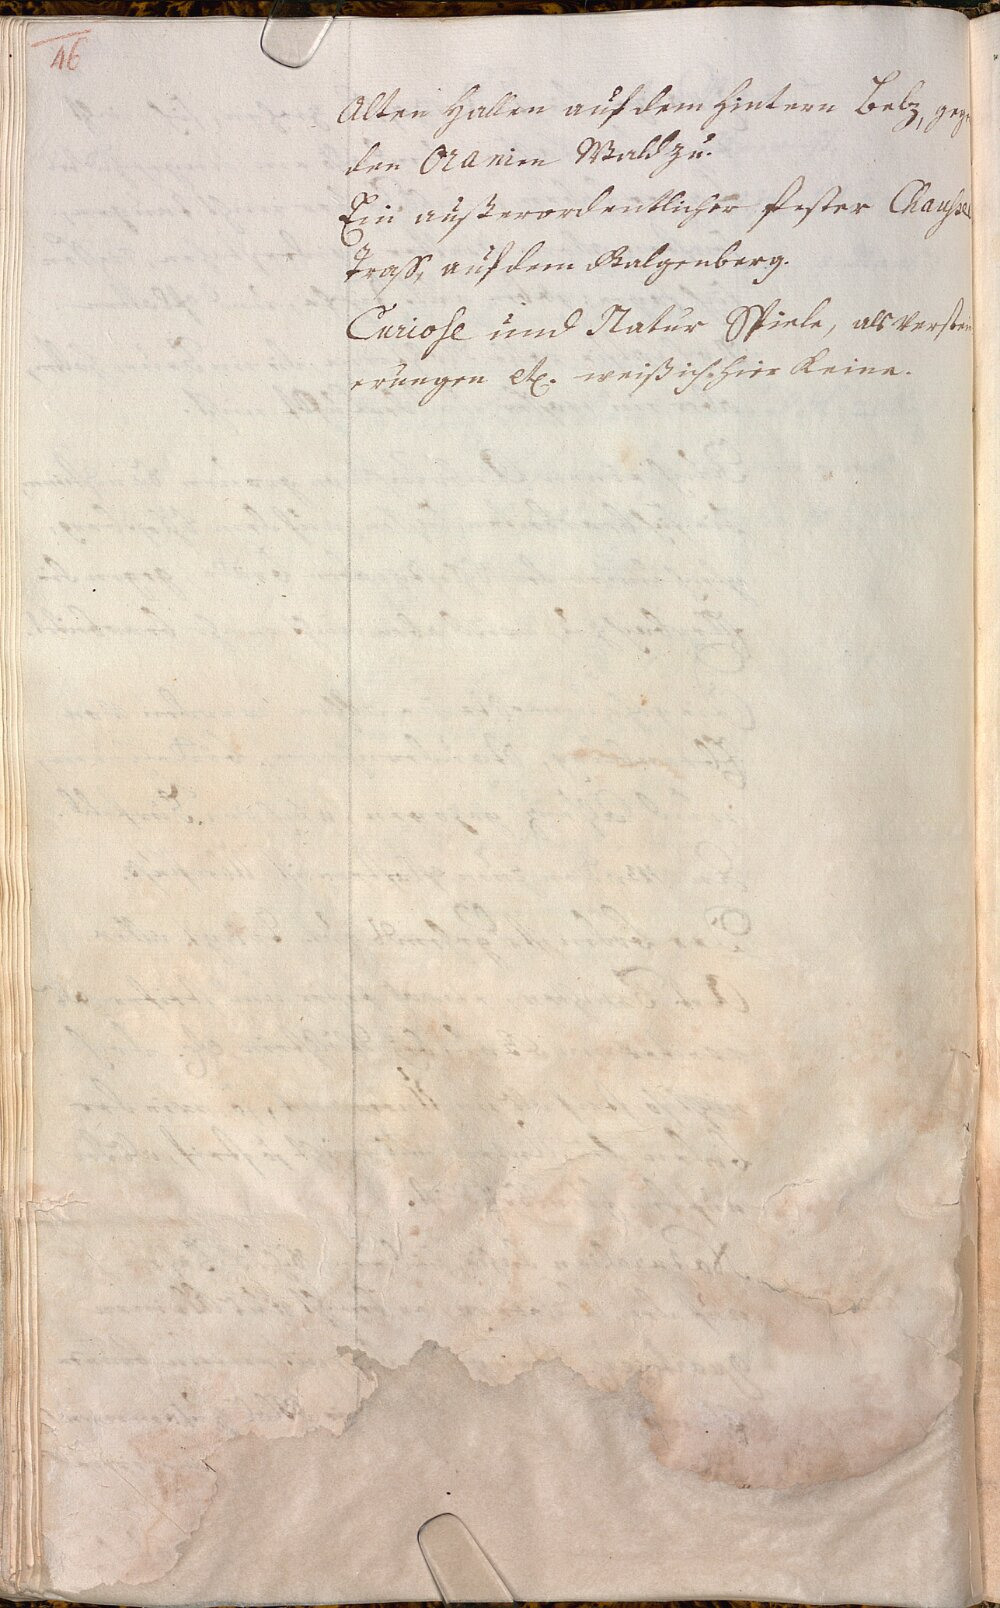 46
Alten Hallen auf dem hintern Belz, geg
den Oranien Wald zu.
Ein außerordentlicher fester Chaussee
Trass, auf dem Galgenberg.
Curiose und Natur Spiele, als Verstein
erungen etc. weiß ich hier Keine.